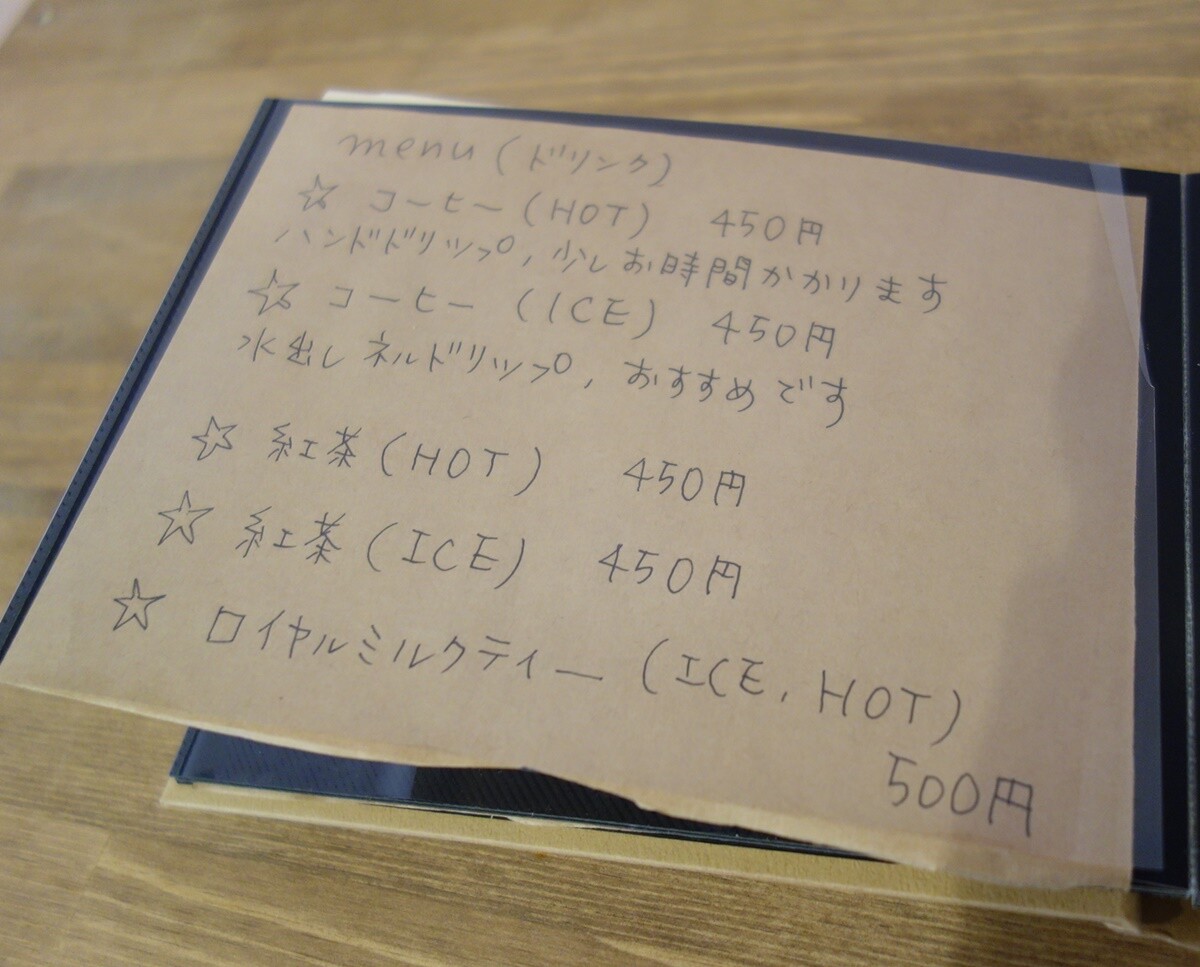 menu (ドリンク)
☆ コーヒー (HOT) 450円
ハンドドリップ, 少しお時間かかります
☆ コーヒー (ICE) 450円
水出しネルドリップ, おすすめです
☆ 紅茶 (HOT) 450円
☆ 紅茶 (ICE) 450円
☆ ロイヤルミルクティー (ICE, HOT)
500円